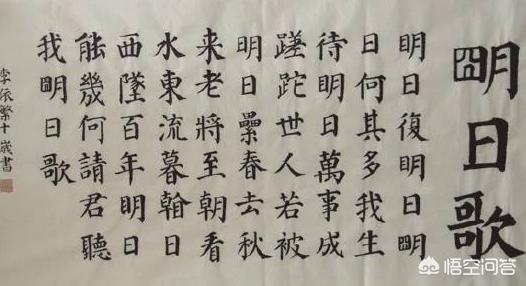 明日歌
明日復明日明
日何其多我生
待明日萬事成
蹉跎世人若被
明日纍春去秋
来老將至朝看
水東流暮翰日
西墜百年明日
能幾何請君聽
我明日歌
李依繁十歲書
悟空问答